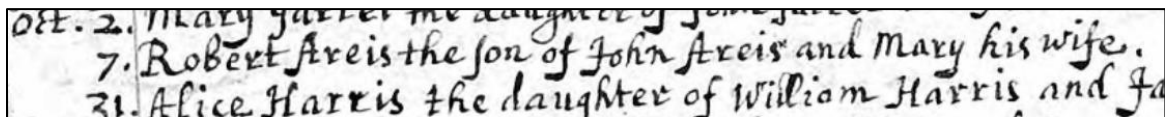 Oct. 2. Mary the daughter of John
7. Robert Areis the ſon of John Areis and Mary his wife.
31. Alice Harris the daughter of William Harris and Ja